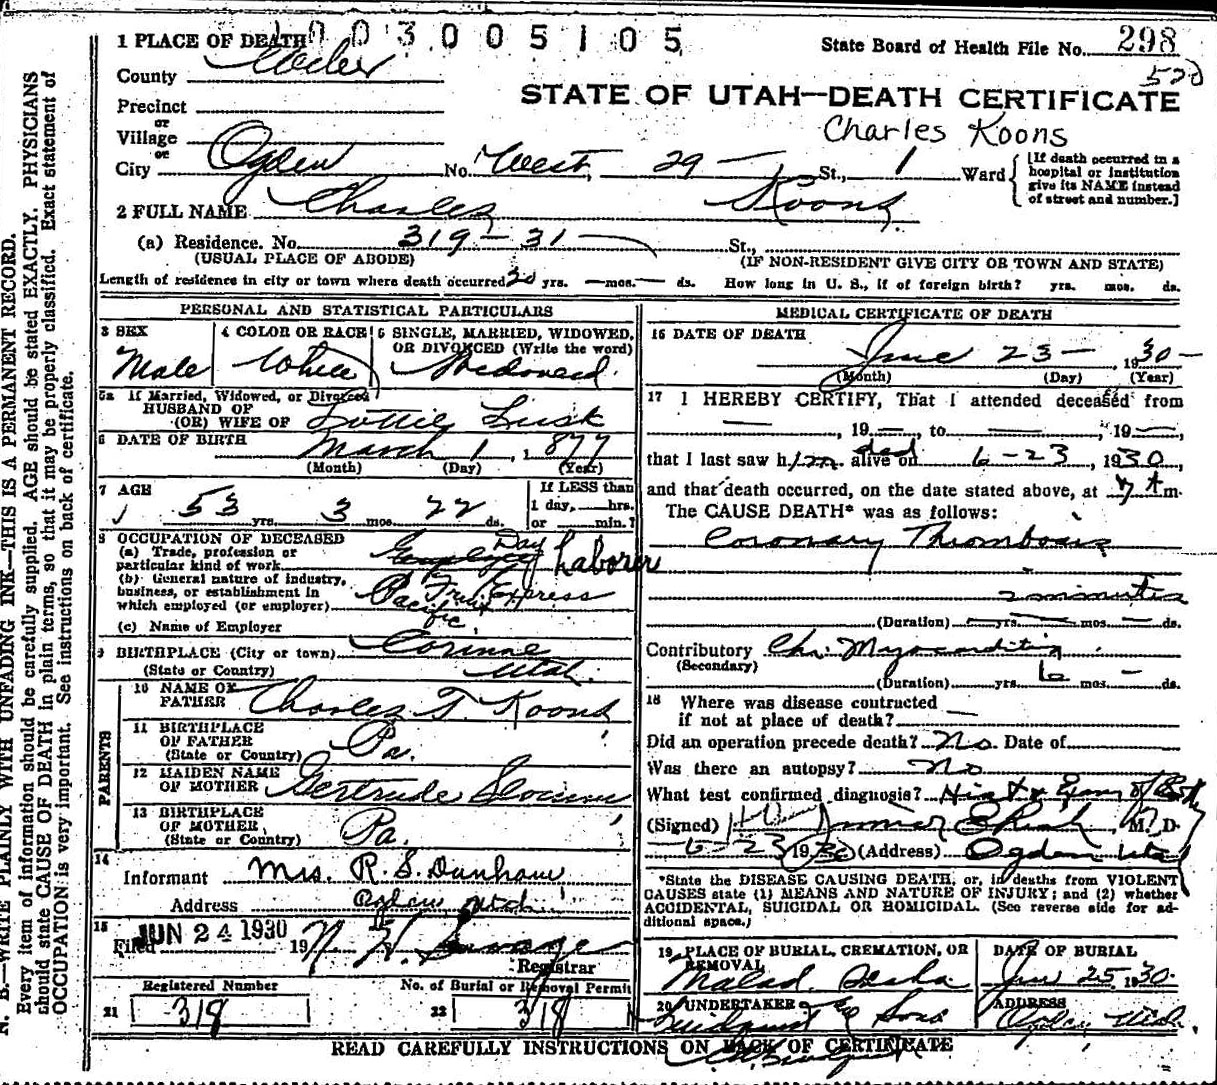 1003005105
1 PLACE OF DEATH
State Board of Health File No. 298
County Weber
520
Precinct
STATE OF UTAH—DEATH CERTIFICATE
or
Village
Charles Koons
or
City Ogden No. West, 29 — St., 1 Ward
[If death occurred in a hospital or institution give its NAME instead of street and number.]
2 FULL NAME Charles Koons
(a) Residence. No. 319 - 31 — St.,
(USUAL PLACE OF ABODE) (IF NON-RESIDENT GIVE CITY OR TOWN AND STATE)
Length of residence in city or town where death occurred 30 yrs. — mos. — ds. How long in U. S., if of foreign birth? yrs. mos. ds.
PERSONAL AND STATISTICAL PARTICULARS
3 SEX
Male
4 COLOR OR RACE
White
5 SINGLE, MARRIED, WIDOWED, OR DIVORCED (Write the word)
5a If Married, Widowed, or Divorced
HUSBAND OF
(OR) WIFE OF Lottie Lusk
6 DATE OF BIRTH
March 1, 1877
(Month) (Day) (Year)
7 AGE
53 yrs. 3 mos. 22 ds.
If LESS than
1 day, hrs.
or min.?
8 OCCUPATION OF DECEASED
(a) Trade, profession or
particular kind of work Day Laborer
(b) General nature of industry,
business, or establishment in
which employed (or employer) Pacific Fruit Express
(c) Name of Employer
9 BIRTHPLACE (City or town) Corinne
(State or Country) Utah.
PARENTS
10 NAME OF
FATHER Charles T. Koons
11 BIRTHPLACE
OF FATHER
(State or Country) Pa.
12 MAIDEN NAME
OF MOTHER Gertrude
13 BIRTHPLACE
OF MOTHER
(State or Country) Pa.
14
Informant Mrs. R. S. Dunham
Address Ogden Utah.
15
Filed JUN 24 1930 19 Savage
Registrar
Registered Number
21 318
No. of Burial or Removal Permit
22 318
MEDICAL CERTIFICATE OF DEATH
16 DATE OF DEATH
June 23 — 1930 —
(Month) (Day) (Year)
17 I HEREBY CERTIFY, That I attended deceased from
—, 19 —, to —, 19 —,
that I last saw him dead alive on 6-23, 1930,
and that death occurred, on the date stated above, at 7 A m.
The CAUSE DEATH* was as follows:
Coronary Thrombosis
minutes
(Duration) — yrs. — mos. — ds.
Contributory Chr. Myocarditis
(Secondary)
(Duration) yrs. 6 mos. — ds.
18 Where was disease contracted
if not at place of death? —
Did an operation precede death? No. Date of
Was there an autopsy? No
What test confirmed diagnosis? Hist & Exam of Body
(Signed) Junior E Rich, M. D.
6-23 1930 (Address) Ogden Utah
*State the DISEASE CAUSING DEATH, or, in deaths from VIOLENT
CAUSES state (1) MEANS AND NATURE OF INJURY; and (2) whether
ACCIDENTAL, SUICIDAL OR HOMICIDAL. (See reverse side for ad-
ditional space.)
19 PLACE OF BURIAL, CREMATION, OR
REMOVAL
Malad, Idaho
DATE OF BURIAL
Jun 25 1930.
20 UNDERTAKER
& Sons
ADDRESS
Ogden Utah.
READ CAREFULLY INSTRUCTIONS ON BACK OF CERTIFICATE
N. B.—WRITE PLAINLY WITH UNFADING INK—THIS IS A PERMANENT RECORD.
Every item of information should be carefully supplied. AGE should be stated EXACTLY. PHYSICIANS
should state CAUSE OF DEATH in plain terms, so that it may be properly classified. Exact statement of
OCCUPATION is very important. See instructions on back of certificate.